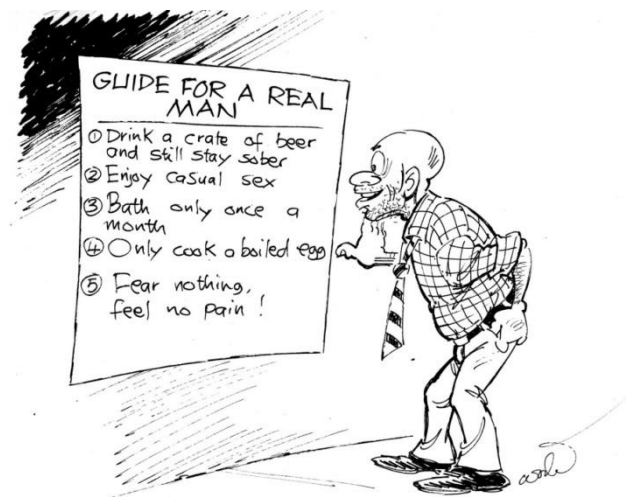 GUIDE FOR A REAL
MAN
① Drink a crate of beer
and still stay sober
② Enjoy casual sex
③ Bath only once a
month
④ Only cook a boiled egg
⑤ Fear nothing,
feel no pain !